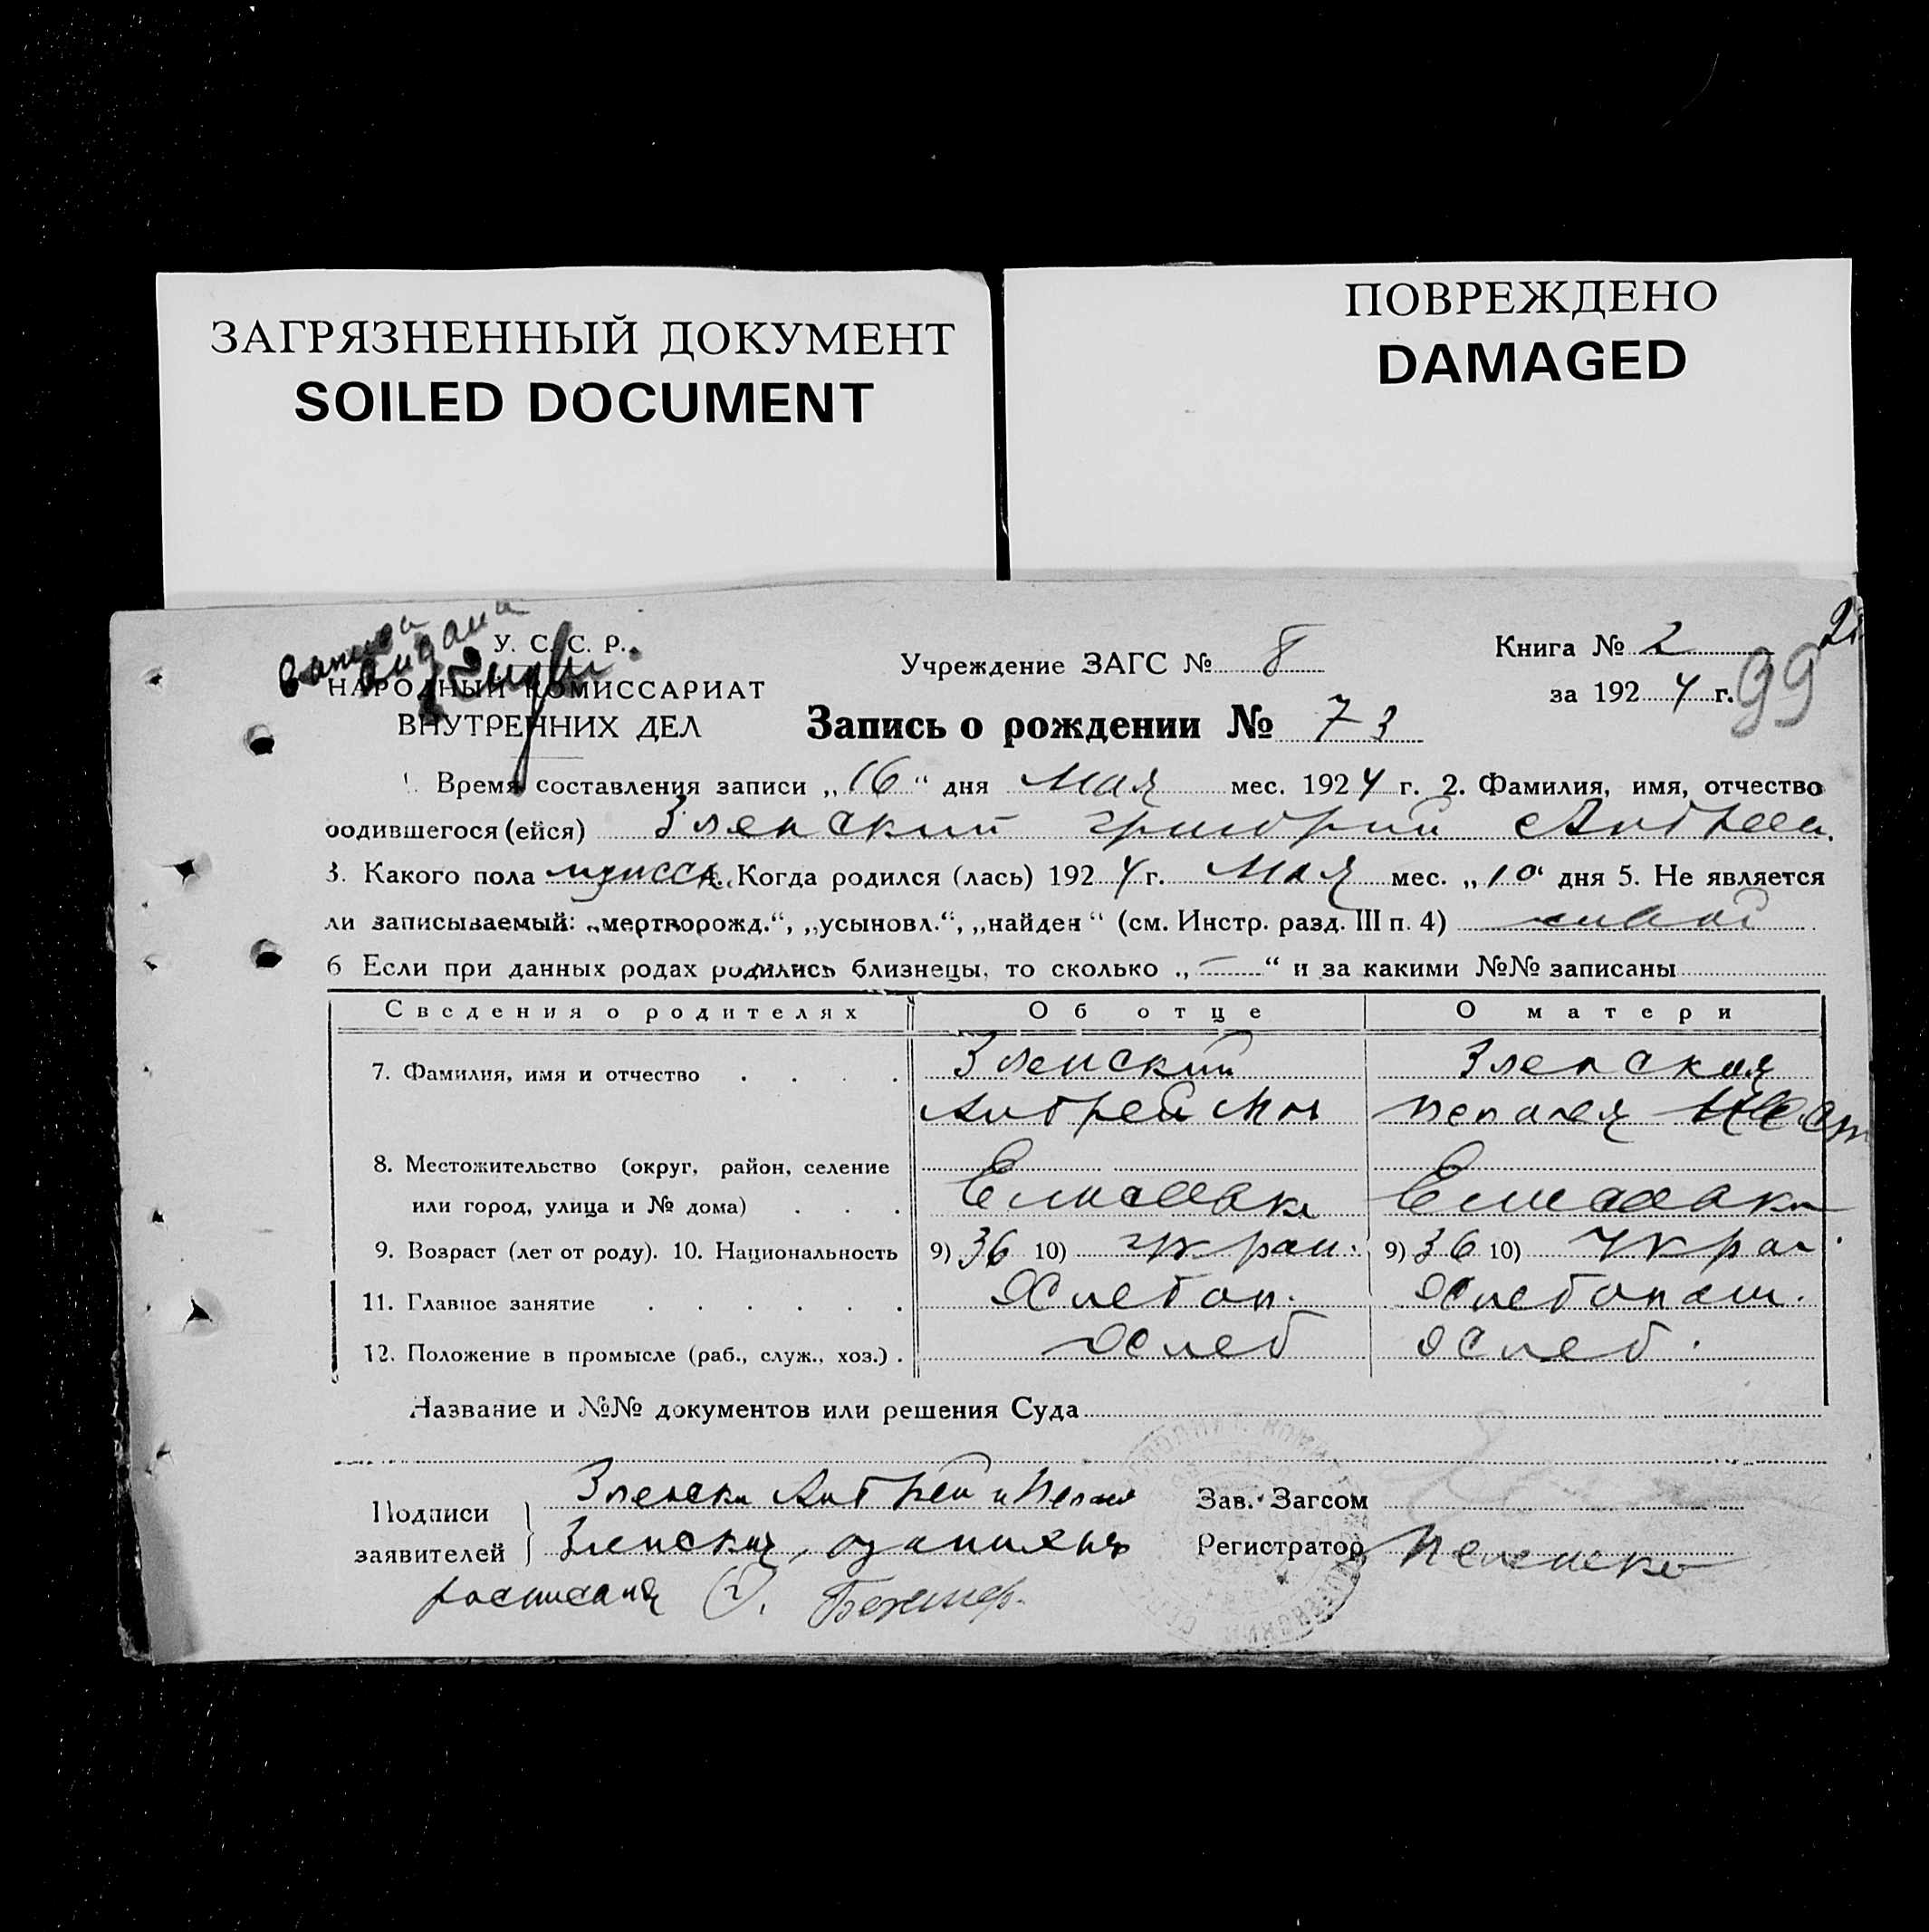 ЗАГРЯЗНЕННЫЙ ДОКУМЕНТ
SOILED DOCUMENT
ПОВРЕЖДЕНО
DAMAGED
У. С. С. Р.
НАРОДНЫЙ КОМИССАРИАТ
ВНУТРЕННИХ ДЕЛ
Учреждение ЗАГС № 8
Книга № 2
за 1924 г.
99
Запись о рождении № 73
1. Время составления записи „16“ дня Мая мес. 1924 г. 2. Фамилия, имя, отчество
родившегося (ейся) Зленский Григорий Андреев.
3. Какого пола мужск. 4. Когда родился (лась) 1924 г. Мая мес. „10“ дня 5. Не является
ли записываемый: „мертворожд.“, „усыновл.“, „найден“ (см. Инстр. разд. III п. 4) живой
6 Если при данных родах родились близнецы, то сколько „—“ и за какими №№ записаны
Сведения о родителях Об отце О матери
7. Фамилия, имя и отчество Зленский Зленская
Андрей Пелагея
8. Местожительство (округ, район, селение
или город, улица и № дома)
9. Возраст (лет от роду). 10. Национальность 9) 36 10) украи. 9) 36 10) укра
11. Главное занятие Хлебоп. Хлебопаш.
12. Положение в промысле (раб., служ., хоз.) Хлеб Хлеб.
Название и №№ документов или решения Суда
Подписи
заявителей
Зленски Андрей и Пелаг
Зленская,
расписался
Зав. Загсом
Регистратор